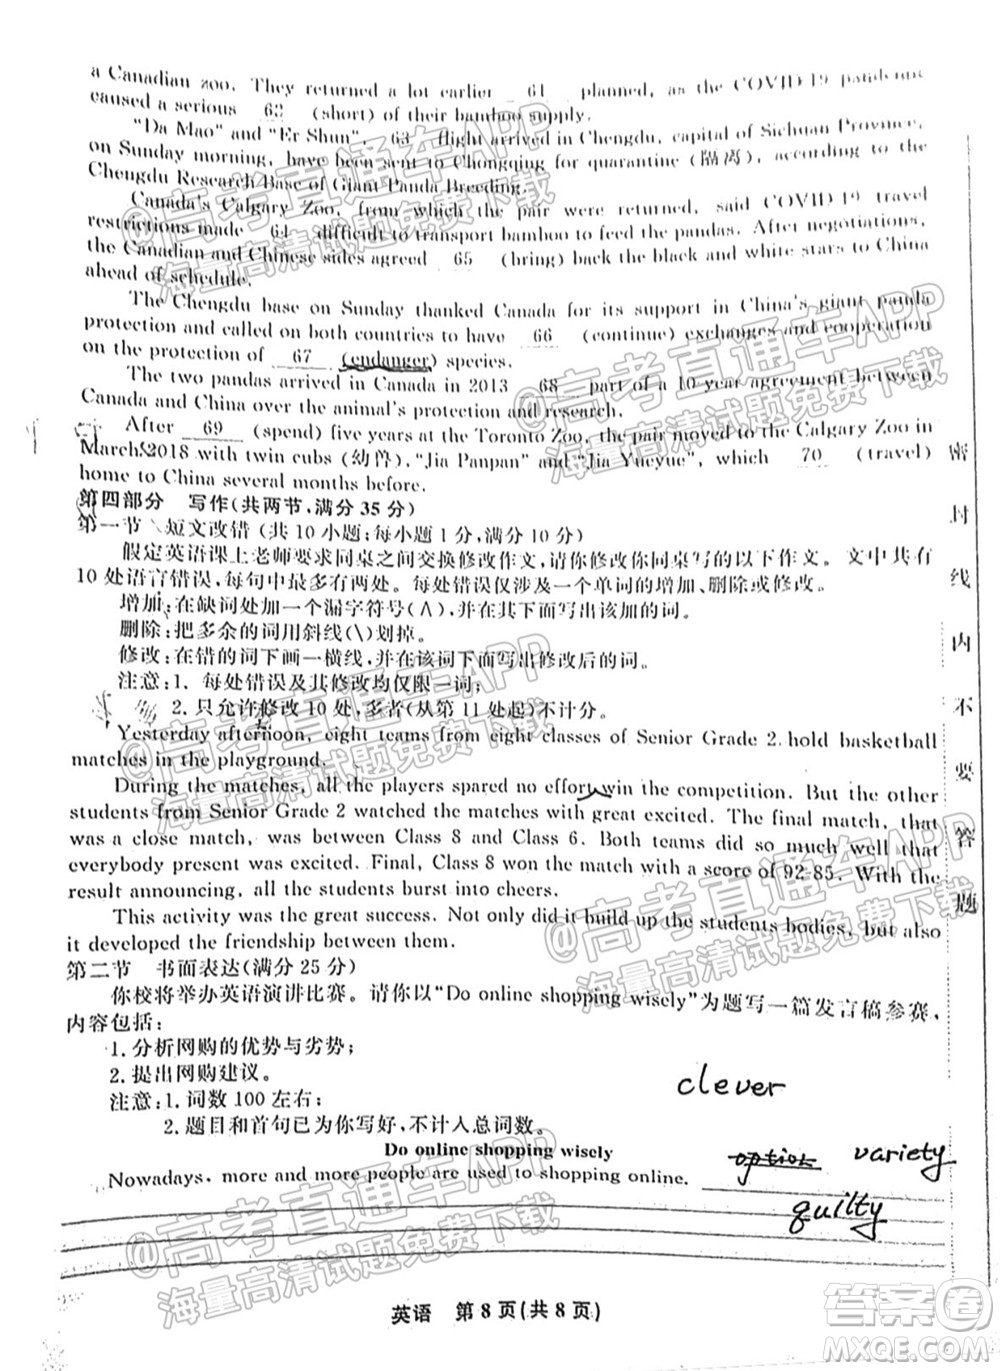 a Canadian zoo. They returned a lot earlier 61 planned, as the COVID-19 pandemic
caused a serious 62 (short) of their bamboo supply.
"Da Mao" and "Er Shun" 63 flight arrived in Chengdu, capital of Sichuan Province,
on Sunday morning, have been sent to Chongqing for quarantine (隔离), according to the
Chengdu Research Base of Giant Panda Breeding.
Canada's Calgary Zoo, from which the pair were returned, said COVID-19 travel
restrictions made 64 difficult to transport bamboo to feed the pandas. After negotiations,
the Canadian and Chinese sides agreed 65 (bring) back the black and white stars to China
ahead of schedule.
The Chengdu base on Sunday thanked Canada for its support in China's giant panda
protection and called on both countries to have 66 (continue) exchanges and cooperation
on the protection of 67 (endanger) species.
The two pandas arrived in Canada in 2013 68 part of a 10-year agreement between
Canada and China over the animal's protection and research.
After 69 (spend) five years at the Toronto Zoo, the pair moved to the Calgary Zoo in
March 2018 with twin cubs (幼兽), "Jia Panpan" and "Jia Yueyue", which 70 (travel)
home to China several months before.
第四部分 写作(共两节,满分 35 分)
第一节 短文改错 (共 10 小题;每小题 1 分,满分 10 分)
假定英语课上老师要求同桌之间交换修改作文,请你修改你同桌写的以下作文。文中共有
10 处语言错误,每句中最多有两处。每处错误仅涉及一个单词的增加、删除或修改。
增加:在缺词处加一个漏字符号(∧),并在其下面写出该加的词。
删除:把多余的词用斜线(\)划掉。
修改:在错的词下画一横线,并在该词下面写出修改后的词。
注意:1. 每处错误及其修改均仅限一词;
2. 只允许修改 10 处,多者(从第 11 处起)不计分。
Yesterday afternoon, eight teams from eight classes of Senior Grade 2 hold basketball
matches in the playground.
During the matches, all the players spared no effort win the competition. But the other
students from Senior Grade 2 watched the matches with great excited. The final match, that
was a close match, was between Class 8 and Class 6. Both teams did so much well that
everybody present was excited. Final, Class 8 won the match with a score of 92-85. With the
result announcing, all the students burst into cheers.
This activity was the great success. Not only did it build up the students bodies, but also
it developed the friendship between them.
第二节 书面表达(满分 25 分)
你校将举办英语演讲比赛。请你以"Do online shopping wisely"为题写一篇发言稿参赛,
内容包括:
1. 分析网购的优势与劣势;
2. 提出网购建议。
clever
注意:1. 词数 100 左右;
2. 题目和首句已为你写好,不计入总词数。
Do online shopping wisely
option variety
Nowadays, more and more people are used to shopping online.
quilty
英语 第 8 页(共 8 页)
密封线内不要答题
@高考直通车APP
海量高清试题免费下载
@高考直通车APP
海量高清试题免费下载
@高考直通车APP
海量高清试题免费下载
@高考直通车APP
海量高清试题免费下载
@高考直通车APP
海量高清试题免费下载
@高考直通车APP
海量高清试题免费下载
答案卷
MXQE.COM